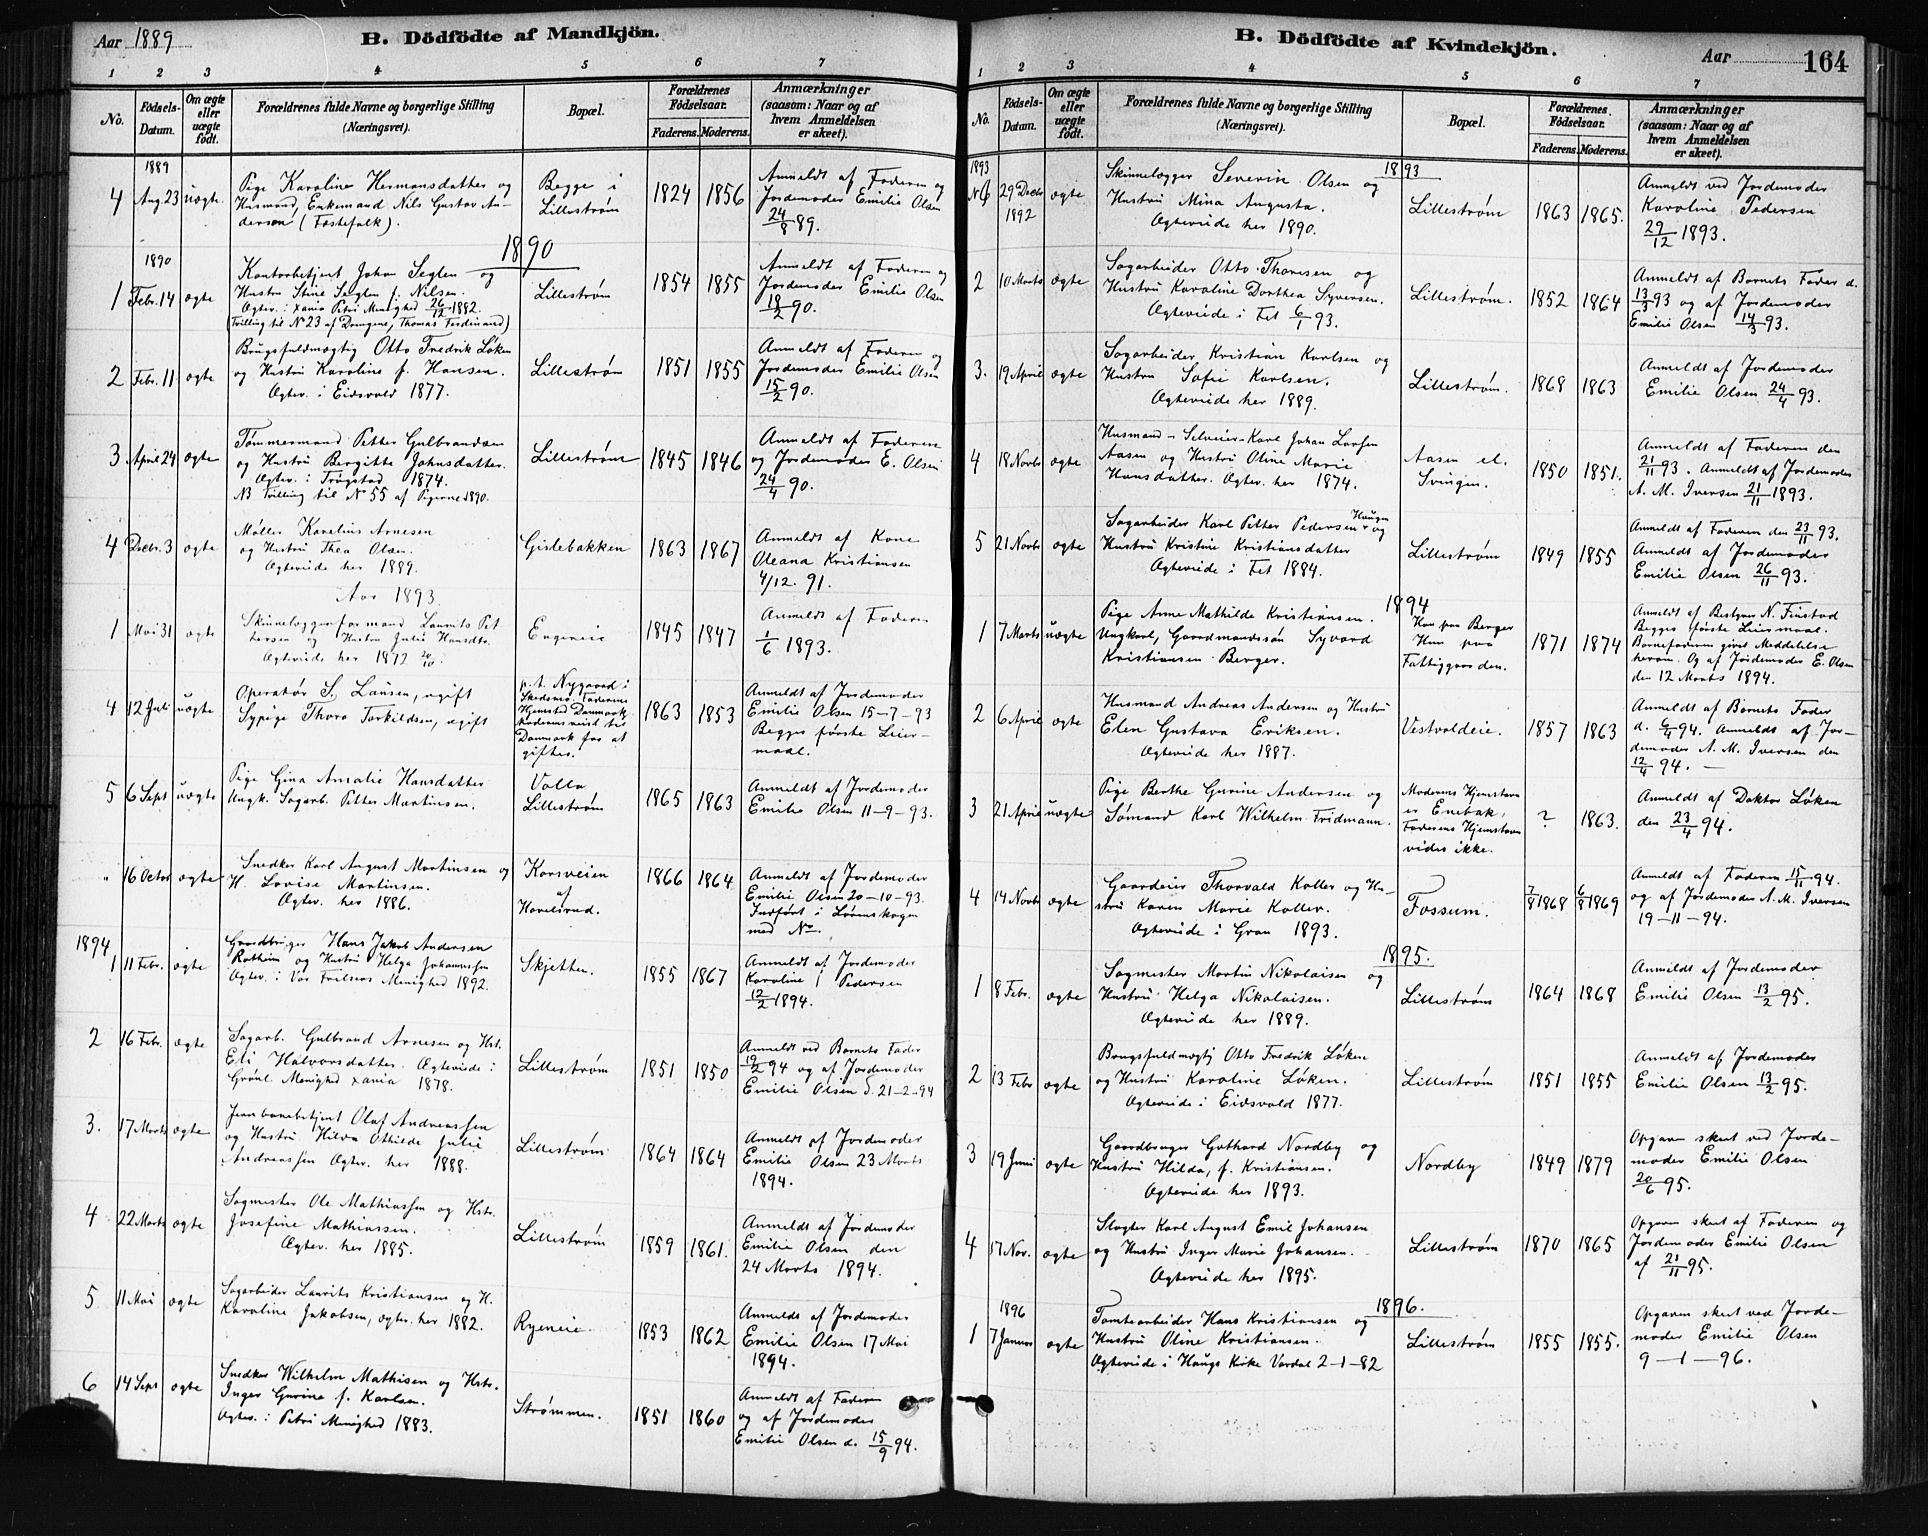 Aar 1889
B. Dödfödte af Mandkjön.
1 2 3 4 5 6 7
No.
Födsels-Datum.
Om ægte eller uægte födt.
Forældrenes fulde Navne og borgerlige Stilling (Næringsvei).
Bopæl.
Forældrenes Födselsaar.
Faderens. Moderens.
Anmærkninger (saasom: Naar og af hvem Anmeldelsen er skeet).
1889
4 Aug. 23 uægte
Pige Karoline Hermansdatter og
Husmand, Enkemand Nils Gustav An-
derson (Fæstefolk).
Begge i
Lillestrøm
1824 1856
Anmeldt af Faderen og
Jordemoder Emilie Olsen
24/8 89.
1890
1890
1 Febr. 14 ægte
Kontorbetjent Johan Seglen og
Hustru Stine Seglen f. Nilsen.
Ægtev. i Xania Petri Menighed 26/12 1882.
(Tvilling til No 23 af Drengene, Thomas Ferdinand)
Lillestrøm
1854 1855
Anmeldt af Faderen og
Jordemoder Emilie Olsen
18/2 90.
2 Febr. 11 ægte
Brugsfuldmægtig Otto Fredrik Løken
og Hustru Karoline f. Hansen.
Ægtev. i Eidsvold 1877.
Lillestrøm
1851 1855
Anmeldt af Faderen og
Jordemoder Emilie Olsen
15/2 90.
3 April 24 ægte
Tømmermand Petter Gulbrandsen
og Hustru Bergitte Johnsdatter.
Ægtev. i Trøgstad 1874.
NB Tvilling til No 55 af Pigerne 1890.
Lillestrøm
1845 1846
Anmeldt af Faderen
og Jordemoder E. Olsen
24/4 90.
4 Decbr. 3 ægte
Møller Karelius Arnesen
og Hustru Thea Olsen.
Ægteviede her 1889.
Gislebakken
1863 1867
Anmeldt af Kone
Oleana Kristiansen
4/12. 91.
Aar 1893
1 Mai 31 ægte
Skinnelæggerformand Laurits Pet
tersen og Hustru Julie Hansdtr.
Ægteviede her 1872 20/10
Engereie
1845 1847
Anmeldt af Faderen
1/6 1893.
4 12 Juli uægte
Operatør S. Lausen, ugift
Sypige Thora Torkildsen, ugift
p. t. Nygaard i
Skedsmo, Faderens
Hjemsted Danmark
Moderens reist til
Danmark for at
giftes.
1863 1853
Anmeldt af Jordemoder
Emilie Olsen 15-7-93
Begges første Leier-
maal.
5 6 Sept uægte
Pige Gina Amalie Hansdatter
Ungk. Sagarb. Petter Martinsen.
Volla
Lillestrøm
1865 1863
Anmeldt af Jordemoder
Emilie Olsen 11-9-93.
" 16 Octor ægte
Snedker Karl August Martinsen og
H. Lovise Martinsen.
Ægtev. her 1886.
Korsveien
af
Havelsrud.
1866 1864
Anmeldt af Jordemoder
Emilie Olsen 20-10-93.
Indført i Lørenskogen
med No.
1894
1 11 Febr. ægte
Gaardbruger Hans Jakob Andersen
Rotheim og Hustru Helga Johannessen
Ægtev. i Vor Frelsers Menighed 1892.
Skjetten.
1855 1867
Anmeldt af Jordemoder
Karoline Pedersen
12/2 1894.
2 16 Febr. ægte
Sagarb. Gulbrand Arnesen og Hstr.
Eli Halvorsdatter. Ægteviede i
Grønl. Menighed Xania 1878.
Lillestrøm
1851 1850
Anmeldt ved Barnets Fader
19/2 94 og af Jordemoder
Emilie Olsen d. 21-2-94
3. 17 Marts ægte
Jernbanebetjent Olaf Andreassen
og Hustru Hilda Othilde Julie
Andreassen Ægtev. her 1888.
Lillestrøm
1864 1864
Anmeldt af Jordemoder
Emilie Olsen 23 Marts
1894.
4 22 Marts ægte
Sagmester Ole Mathiassen og Hstr.
Josefine Mathiassen.
Ægtev. her 1885.
Lillestrøm
1859 1861.
Anmeldt af Jordemoder
Emilie Olsen den
24 Marts 1894.
5 11 Mai ægte
Sagarbeider Laurits Kristiansen og H.
Karoline Jakobsen, ægtev. her 1882.
Ryeneie
1853 1862
Anmeldt af Jordemoder
Emilie Olsen 17 Mai
1894.
6 14 Sept ægte
Snedker Wilhelm Mathisen og Hstr.
Inger Gurine f. Karlsen.
Ægtev. i Petri Menighed 1883.
Strømmen.
1851 1860
Anmeldt af Faderen
og af Jordemoder
Emilie Olsen d. 15/9 94.
B. Dödfödte af Kvindekjön.
Aar 164
1 2 3 4 5 6 7
No.
Födsels-Datum.
Om ægte eller uægte födt.
Forældrenes fulde Navne og borgerlige Stilling (Næringsvei).
Bopæl.
Forældrenes Födselsaar.
Faderens. Moderens.
Anmærkninger (saasom: Naar og af hvem Anmeldelsen er skeet).
1893
1893
29 Decbr 1892 ægte
Skinnelægger Severin Olsen og
Hustru Mina Augusta.
Ægteviede her 1890.
Lillestrøm
1863 1865.
Anmeldt ved Jordemoder
Karoline Pedersen
29/12 1893.
2 10 Marts ægte
Sagarbeider Otto Thoresen og
Hustru Karoline Dorthea Syversen.
Ægteviede i Fet 6/1 93.
Lillestrøm.
1852 1864
Anmeldt af Barnets Fader d.
13/3 93 og af Jordemoder
Emilie Olsen 14/3 93.
3. 19 April ægte
Sagarbeider Kristian Karlsen og
Hustru Sofie Karlsen.
Ægteviede her 1889.
Lillestrøm.
1868 1863
Anmeldt af Jordemoder
Emilie Olsen 24/4 93.
4 18 Novbr ægte
Husmand-Selveier-Karl Johan Larsen
Aasen og Hustru Oline Marie
Hansdatter. Ægtev. her 1874.
Aasen el.
Svingen.
1850 1851.
Anmeldt af Faderen den
21/11 93. Anmeldt af Jordemoder
A. M. Iversen 21/11 1893.
5 21 Novbr ægte
Sagarbeider Karl Petter Pedersen Haugen og
Hustru Kristine Kristiansdatter
Ægteviede i Fet 1884.
Lillestrøm
1849 1855
Anmeldt af Faderen den 23/11 93.
Anmeldt af Jordemoder
Emilie Olsen 26/11 93.
1894
1 7 Marts uægte
Pige Anne Mathilde Kristiansen.
Ungkarl, Gaardmandssøn Syvard
Kristiansen Berger.
Han paa Berger
Hun paa
Fattiggaarden.
1871 1874
Anmeldt af Bestyrer N. Finstad
Begges første Leiermaal.
Barnefaderen givet Meddelelse
herom. Og af Jordemoder E. Olsen
den 12 Marts 1894.
2 6 April ægte
Husmand Andreas Andersen og Hustru
Elen Gustava Eriksen.
Ægteviede her 1887.
Vestvoldeie.
1857 1863
Anmeldt af Barnets Fader
d. 6/4 94. Anmeldt af Jor-
demoder A. M. Iversen den
12/4 94. —
3 21 April uægte
Pige Berthe Gurine Andersen og
Sømand Karl Wilhelm Fridmann.
Moderens Hjemstavn
er Enebak,
Faderens Hjemstavn
vides ikke.
? 1863.
Anmeldt af Doktor Løken
den 23/4 94.
4 14 Novbr ægte
Gaardeier Thorvald Koller og Hu-
stru Karen Marie Koller.
Ægteviede i Gran 1893.
Fossum.
7/8 1868 6/8 1869
Anmeldt af Faderen 15/11 94.
og af Jordemoder A. M. Iversen
19-11-94.
1895.
1 8 Febr. ægte
Sagmester Martin Nikolaisen og
Hustru Helga Nikolaisen.
Ægteviede her 1889.
Lillestrøm
1864 1868
Anmeldt af Jordemoder
Emilie Olsen 13/2 95.
2 13 Febr ægte
Brugsfuldmægtig Otto Fredrik Løken
og Hustru Karoline Løken.
Ægteviede i Eidsvold 1877.
Lillestrøm
1851 1855
Anmeldt af Jordemoder
Emilie Olsen 13/2 95.
3 19 Juni ægte
Gaardbruger Gothard Nordby og
Hustru Hilda, f. Kristiansen.
Ægteviede her 1893.
Nordby
1849 1879
Opgaven skeet ved Jorde-
moder Emilie Olsen
20/6 95.
4 17 Nov. ægte
Slagter Karl August Emil Johansen
og Hustru Inger Marie Johansen.
Ægteviede her 1895.
Lillestrøm
1870 1865
Opgaven skeet af Faderen og
Jordemoder Emilie Olsen
af 21/11 95.
1896.
1896
1 7 Januar ægte
Tomtearbeider Hans Kristiansen og
Hustru Oline Kristiansen.
Ægteviede i Haugs Kirke Værdal 2-1-82
Lillestrøm
1855 1855.
Opgaven skeet ved Jorde-
moder Emilie Olsen
9-1-96.